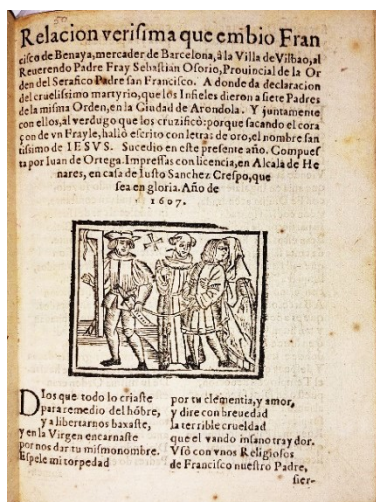 Relacion verisima que embio Fran
cisco de Benaya, mercader de Barcelona, à la Villa de Vilbao, al
Reuerendo Padre Fray Sebastian Osorio, Prouincial de la Or
den del Serafico Padre san Francisco. A donde da declaracion
del cruelissimo martyrio, que los Infieles dieron a siete Padres
de la misma Orden, en la Ciudad de Arondola. Y juntamente
con ellos, al verdugo que los cruzificò: porque sacando el cora
çon de vn Frayle, hallò escrito con letras de oro, el nombre san
tissimo de IESVS. Sucedio en este presente año. Compues
ta por Iuan de Ortega. Impressas con licencia, en Alcalà de He
nares, en casa de Iusto Sanchez Crespo, que
sea en gloria. Año de
1607.
Dios que todo lo criaste
para remedio del hõbre,
y a libertarnos baxaste,
y en la Virgen encarnaste
por nos dar tu mismo nombre.
Espele mi torpedad
por tu clemẽtia, y amor,
y dire con breuedad
la terrible crueldad
que el vando insano traydor.
Vsò con vnos Religiosos
de Francisco nuestro Padre,
sier-